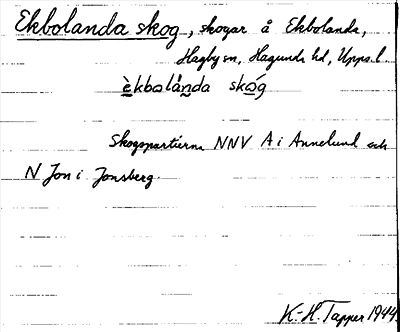 Ekbolanda skog, skogar å Ekbolanda,
Hagby sn, Hagunda hd, Upps. l.
èkbolånda skóg
Skogspartierna NNV A i Annelund och
N Jon i Jonsberg.
K.-H. Tapper 1944.